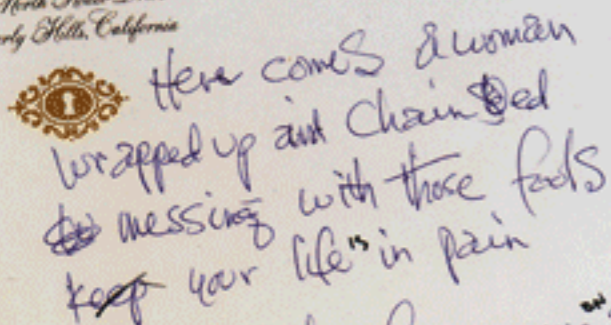 North
erly Hills, California
Here comes a woman
wrapped up and Chained
messing with those fools
keep your life is in pain